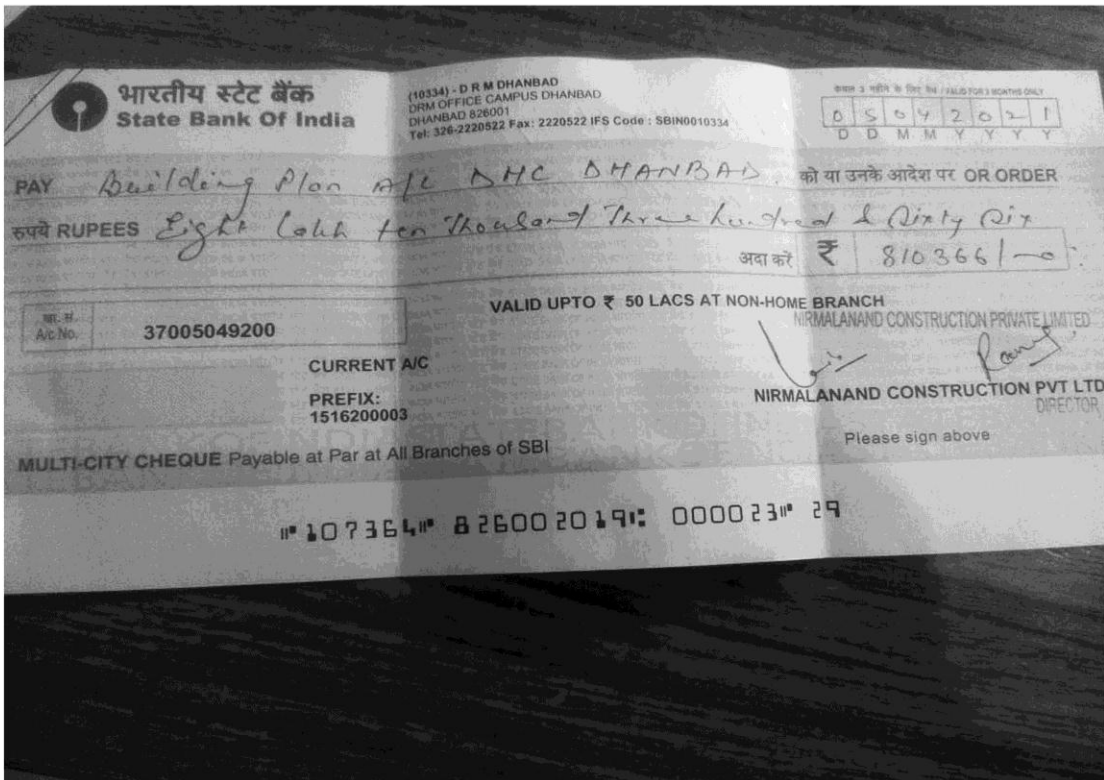 भारतीय स्टेट बैंक
State Bank Of India
(10334) - D R M DHANBAD
DRM OFFICE CAMPUS DHANBAD
DHANBAD 826001
Tel: 326-2220522 Fax: 2220522 IFS Code : SBIN0010334
केवल 3 महीने के लिए वैध / VALID FOR 3 MONTHS ONLY
0 5 0 4 2 0 2 1
D D M M Y Y Y Y
PAY Building Plan A/C DMC DHANBAD. को या उनके आदेश पर OR ORDER
रुपये RUPEES Eight lakh ten Thousand Three hundred & Sixty Six
अदा करें ₹ 810366/-
खा. सं.
A/c No. 37005049200
VALID UPTO ₹ 50 LACS AT NON-HOME BRANCH
NIRMALANAND CONSTRUCTION PRIVATE LIMITED
CURRENT A/C
PREFIX:
1516200003
NIRMALANAND CONSTRUCTION PVT LTD
DIRECTOR
Please sign above
MULTI-CITY CHEQUE Payable at Par at All Branches of SBI
⑈107364⑈ 826002019⑆ 000023⑈ 29